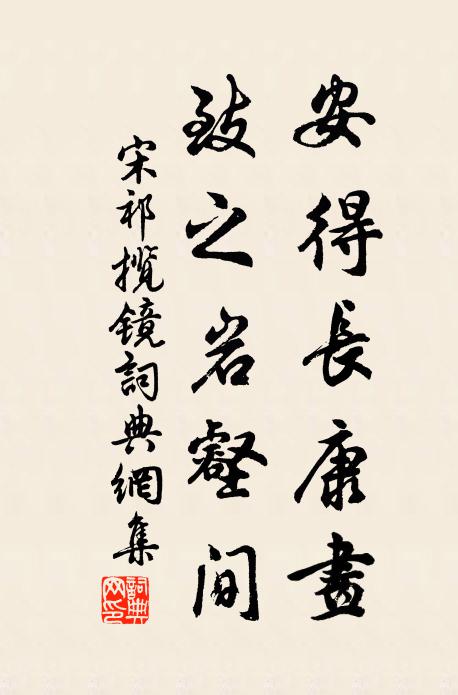 安得長康畫
致之岩壑間
宋祁攬鏡詞典網集
詞典网印